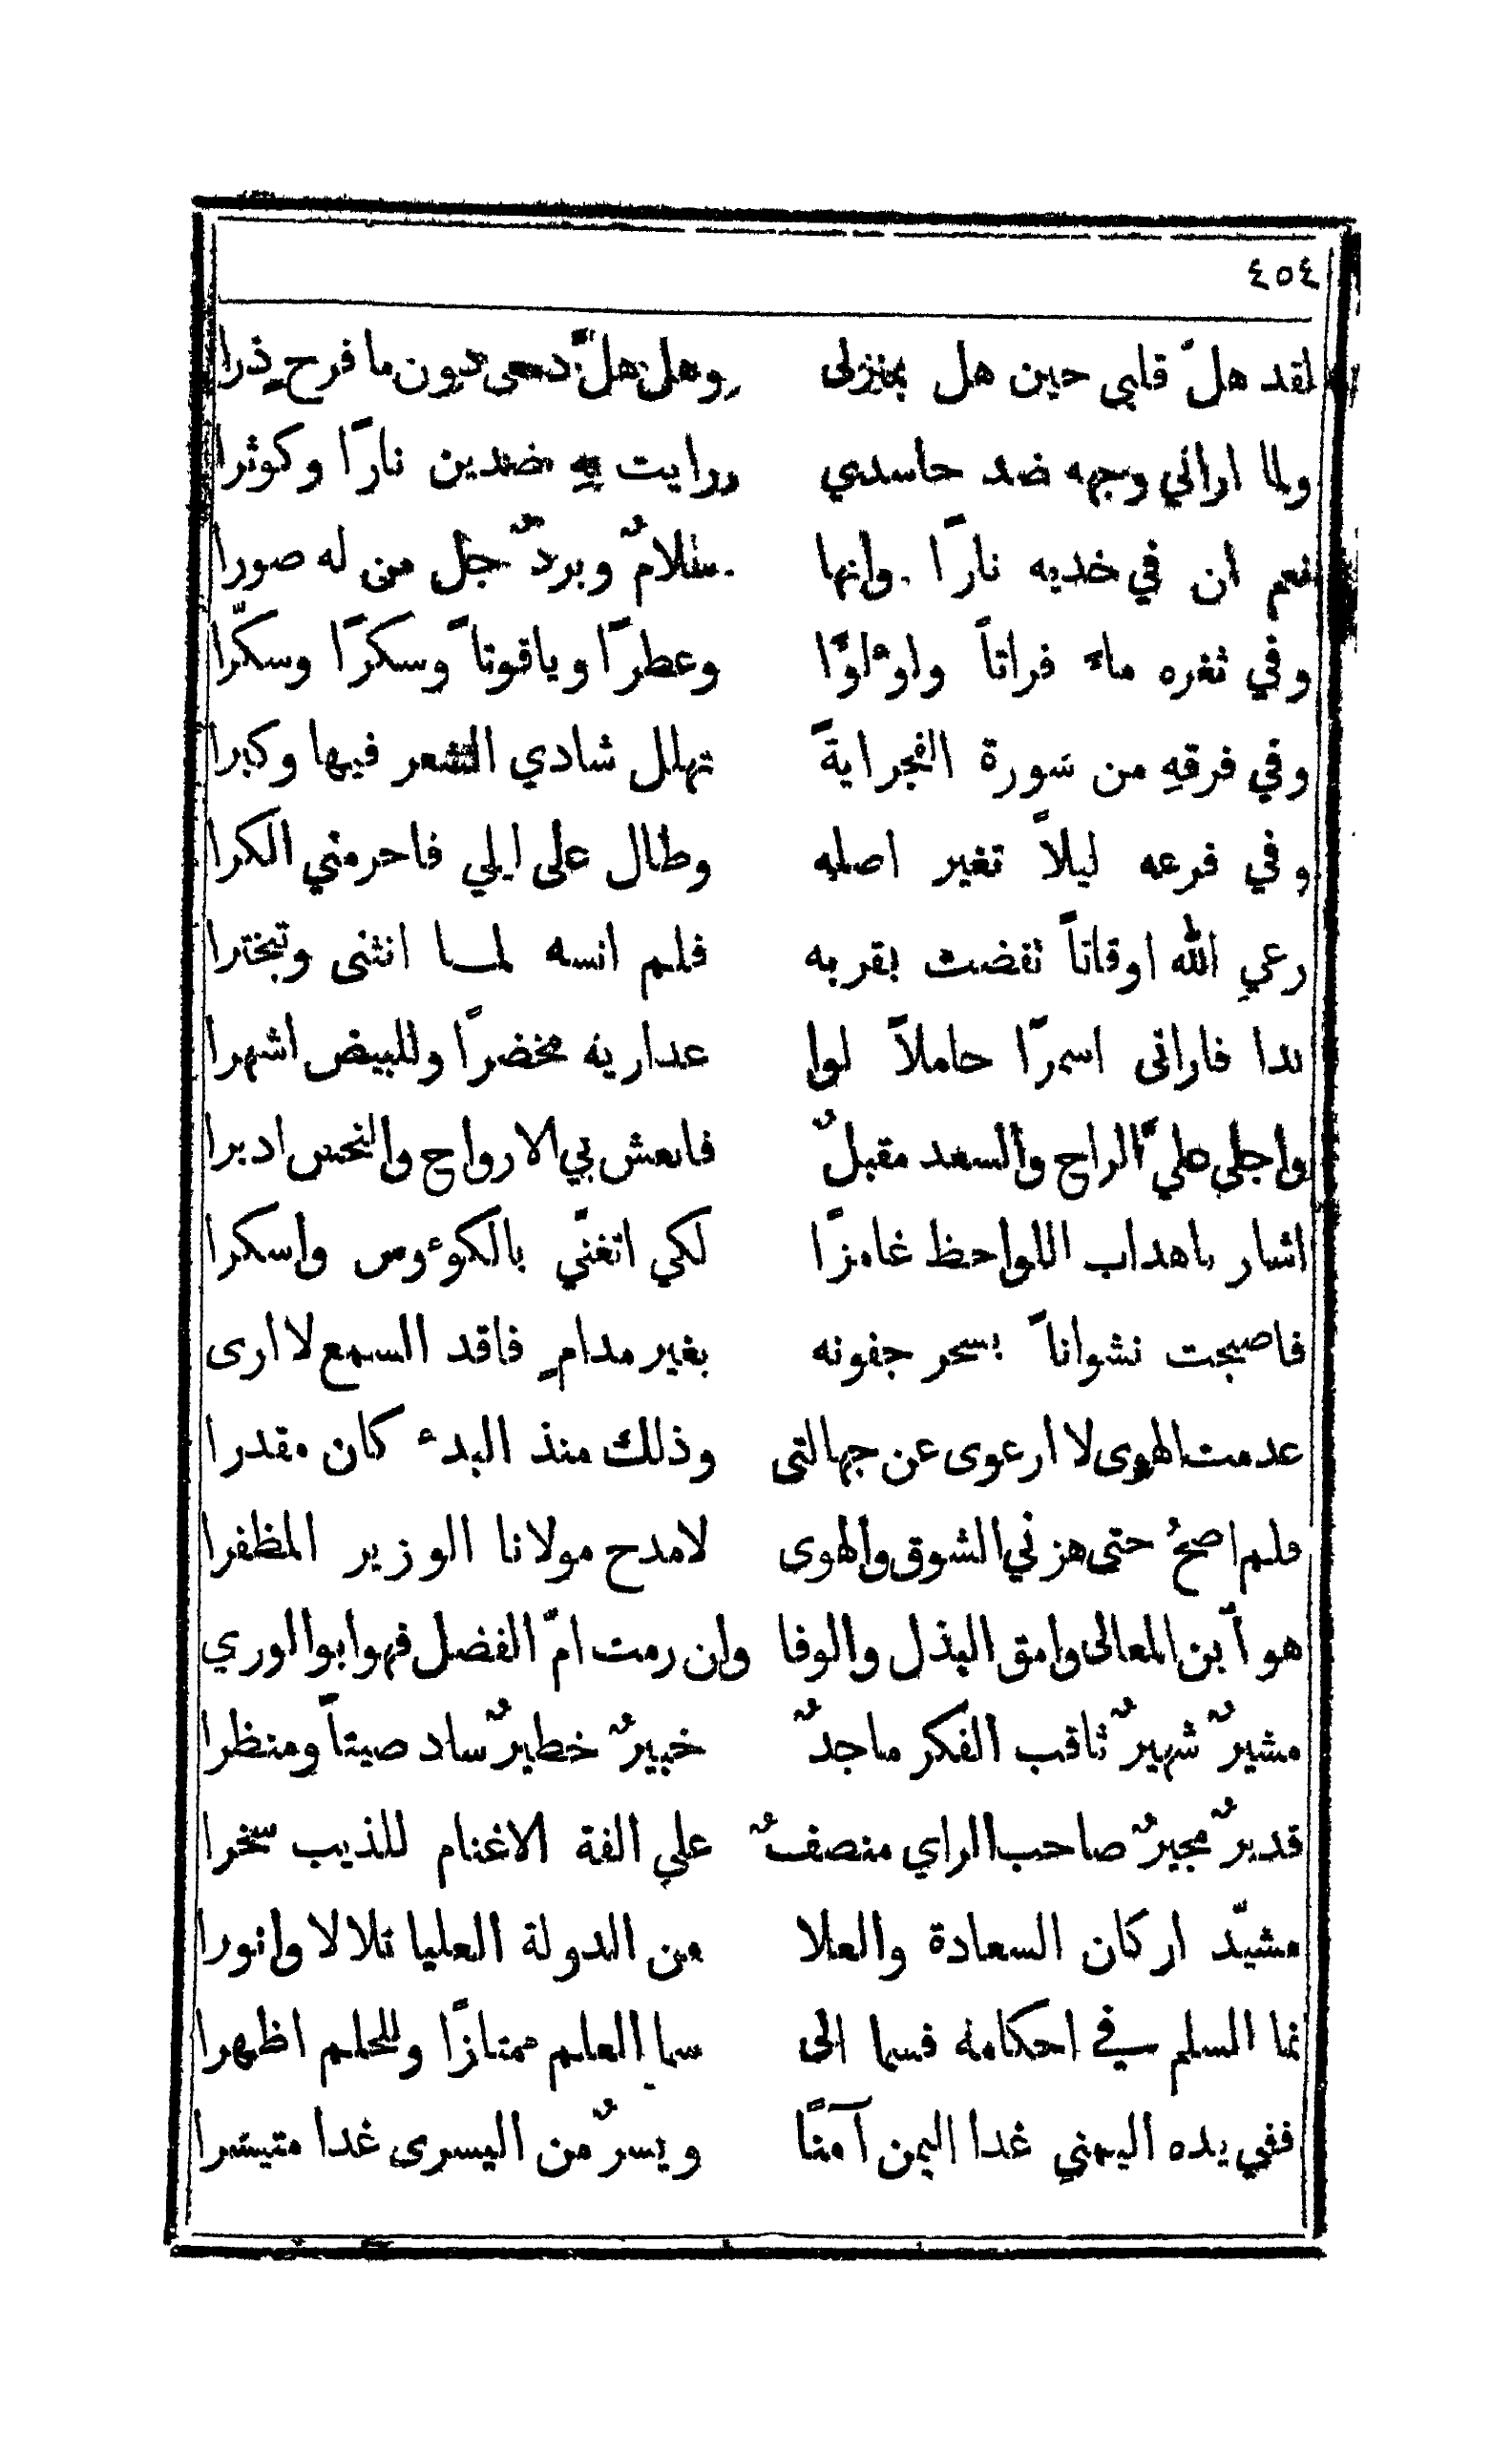 ٤٥٤
لقد هلّ قلبي حين هل بمنزلى وهل هلّ دمعى دون ما فرحٍ ذرا
ولما اراني وجهه ضد حاسدي ورايت به ضدين نارًا وكوثرا
نعم ان في خديه نارًا وانها سلامٌ وبردٌ جل من له صورا
وفي ثغره ماء فراتاً ولوءلوًا وعطرًا وياقوتاً وسكرًا وسكّرا
وفي فرقهِ من سَورة الفجر ايةً تهلل شادي الشعر فيها وكبرا
وفي فرعه ليلاً تغير اصله وطال على ليلي فاحرمني الكرا
رعي الله اوقاتاً تقضت بقربه فلم انسه لما انثنى وتبخترا
بدا فارانى اسمرًا حاملاً لوا عداريه مخضرًا وللبيض اشهرا
واجلى عليّ الراح والسعد مقبلٌ فانعش بي الارواح والنحس ادبرا
اشار باهداب اللواحظ غامزًا لكي اتغنّي بالكوءوس واسكرا
فاصبحت نشواناً بسحر جفونه بغير مدامٍ فاقد السمع لا ارى
عدمت الهوى لا ارعوى عن جهالتى وذلك منذ البدء كان مقدرا
فلم اصحُ حتى هزني الشوق والهوى لامدح مولانا الوزير المظفرا
هو أبن المعالى وامق البذل والوفا وان رمت امّ الفضل فهو ابو الوري
مشيرٌ شهيرٌ ثاقب الفكر ماجدٌ خبيرٌ خطيرٌ ساد صيتاً ومنظرا
قديرٌ مجيرٌ صاحب الراي منصفٌ علي الفة الاغنام للذيب سخرا
مشيّد اركان السعادة والعلا من الدولة العليا تلالا وانورا
نما السلم في احكامه فسما الى سما العلم ممتازًا وللحلم اظهرا
ففي يده اليمني غدا اليمن آمنًا ويسرٌ من اليسرى غدا متيسَرا